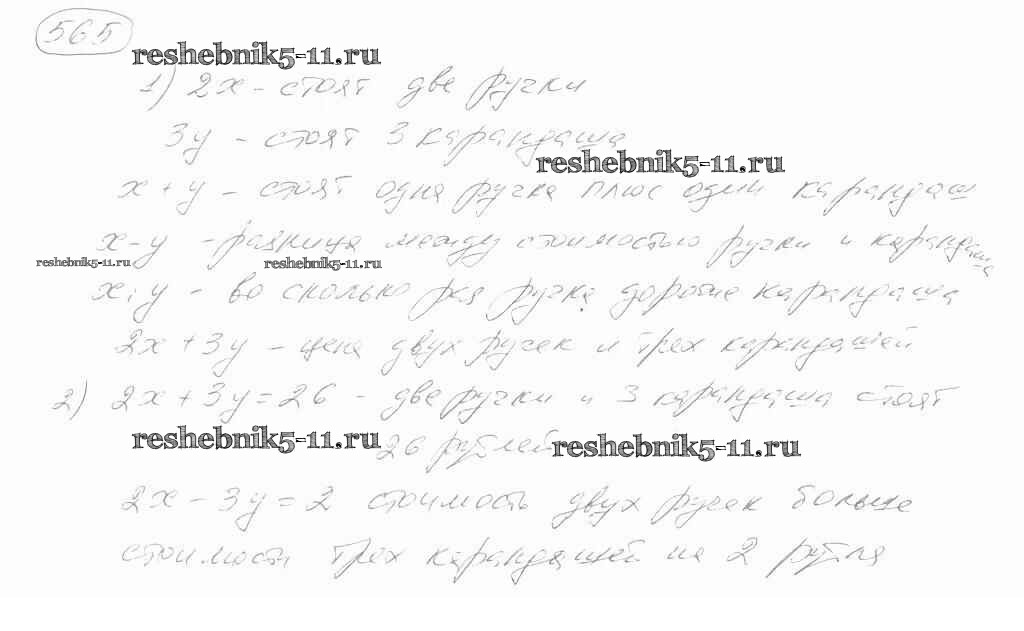 565
reshebnik5-11.ru
1) 2x - стоят две ручки
3y - стоят 3 карандаша
reshebnik5-11.ru
x + y - стоят одна ручка плюс один карандаш
x - y - разница между стоимостью ручки и карандаша
reshebnik5-11.ru reshebnik5-11.ru
x : y - во сколько раз ручка дороже карандаша
2x + 3y - цена двух ручек и трех карандашей
2) 2x + 3y = 26 - две ручки и 3 карандаша стоят
reshebnik5-11.ru 26 рублей reshebnik5-11.ru
2x - 3y = 2 стоимость двух ручек больше
стоимости трех карандашей на 2 рубля